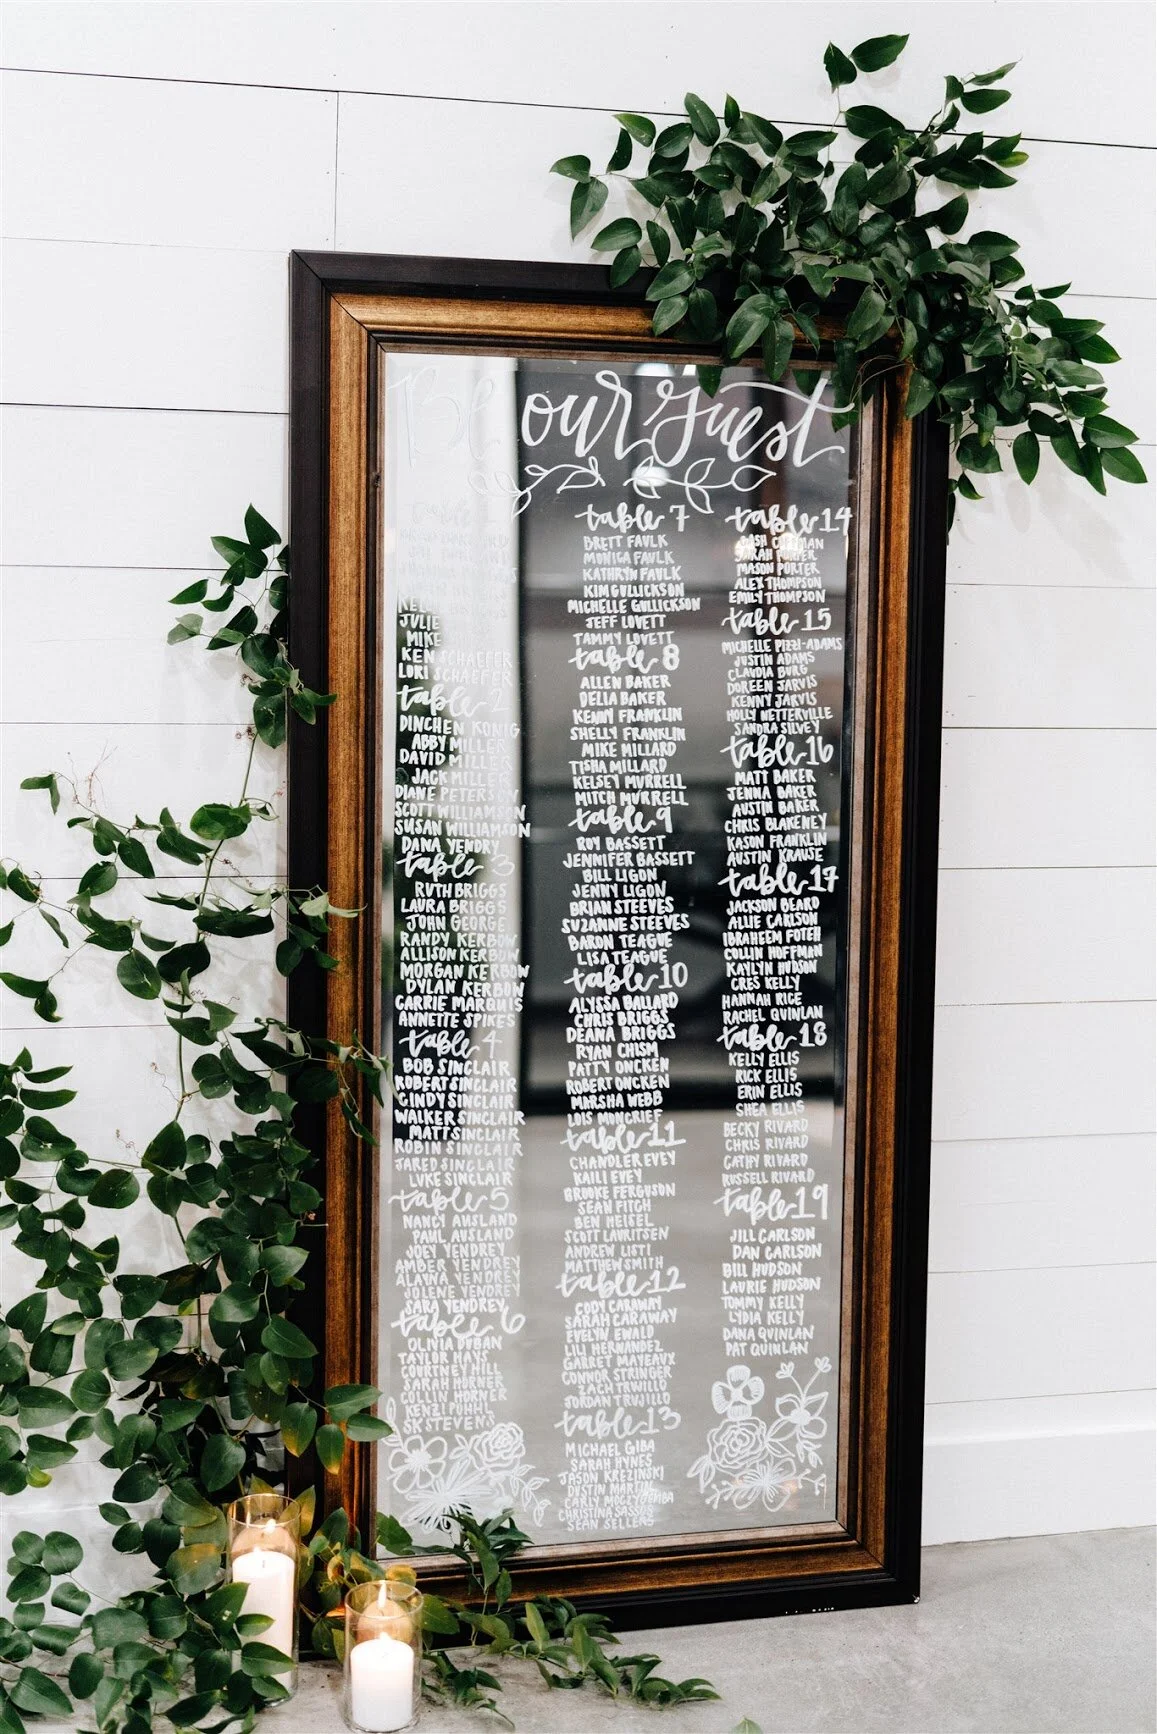 Be our guest
table 1
KEN SCHAEFER
LORI SCHAEFER
table 2
DINCHEN KONIG
ABBY MILLER
DAVID MILLER
JACK MILLER
DIANE PETERSON
SCOTT WILLIAMSON
SUSAN WILLIAMSON
DANA YENDRY
table 3
RUTH BRIGGS
LAURA BRIGGS
JOHN GEORGE
RANDY KERBOW
ALLISON KERBOW
MORGAN KERBOW
DYLAN KERBOW
CARRIE MARQUIS
ANNETTE SPIKES
table 4
BOB SINCLAIR
ROBERT SINCLAIR
CINDY SINCLAIR
WALKER SINCLAIR
MATT SINCLAIR
ROBIN SINCLAIR
JARED SINCLAIR
LUKE SINCLAIR
table 5
NANCY AUSLAND
PAUL AUSLAND
JOEY YENDREY
AMBER YENDREY
ALAYNA YENDREY
JOLENE YENDREY
SARA YENDREY
table 6
OLIVIA DUBAN
TAYLOR HAYS
COURTNEY HILL
SARAH HORNER
COLLIN HORNER
KENZI POHHL
SK STEVENS
table 7
BRETT FAULK
MONICA FAULK
KATHRYN FAULK
KIM GULLICKSON
MICHELLE GULLICKSON
JEFF LOVETT
TAMMY LOVETT
table 8
ALLEN BAKER
DELIA BAKER
KENNY FRANKLIN
SHELLY FRANKLIN
MIKE MILLARD
TISHA MILLARD
KELSEY MURRELL
MITCH MURRELL
table 9
ROY BASSETT
JENNIFER BASSETT
BILL LIGON
JENNY LIGON
BRIAN STEEVES
SUZANNE STEEVES
BARON TEAGUE
LISA TEAGUE
table 10
ALYSSA BALLARD
CHRIS BRIGGS
DEANA BRIGGS
RYAN CHISM
PATTY ONCKEN
ROBERT ONCKEN
MARSHA WEBB
LOIS MONCRIEF
table 11
CHANDLER EVEY
KAILI EVEY
BROOKE FERGUSON
SEAN FITCH
BEN HEISEL
SCOTT LAURITSEN
ANDREW LISTI
MATTHEW SMITH
table 12
CODY CARAWAY
SARAH CARAWAY
EVELYN EWALD
LILI HERNANDEZ
GARRET MAYEAUX
CONNOR STRINGER
ZACH TRUJILLO
JORDAN TRUJILLO
table 13
MICHAEL GIBA
SARAH HYNES
JASON KREZINSKI
DUSTIN MARTIN
CARLY
CHRISTINA
SEAN SELLERS
table 14
SARAH PORTER
MASON PORTER
ALEX THOMPSON
EMILY THOMPSON
table 15
MICHELLE PIZZI-ADAMS
JUSTIN ADAMS
CLAUDIA BURG
DOREEN JARVIS
KENNY JARVIS
HOLLY NETTERVILLE
SANDRA SILVEY
table 16
MATT BAKER
JENNA BAKER
AUSTIN BAKER
CHRIS BLAKENEY
KASON FRANKLIN
AUSTIN KRAUSE
table 17
JACKSON BEARD
ALLIE CARLSON
IBRAHEEM FOTEH
COLLIN HOFFMAN
KAYLYN HUDSON
CRES KELLY
HANNAH RICE
RACHEL QUINLAN
table 18
KELLY ELLIS
RICK ELLIS
ERIN ELLIS
SHEA ELLIS
BECKY RIVARD
CHRIS RIVARD
CATHY RIVARD
RUSSELL RIVARD
table 19
JILL CARLSON
DAN CARLSON
BILL HUDSON
LAURIE HUDSON
TOMMY KELLY
LYDIA KELLY
DANA QUINLAN
PAT QUINLAN